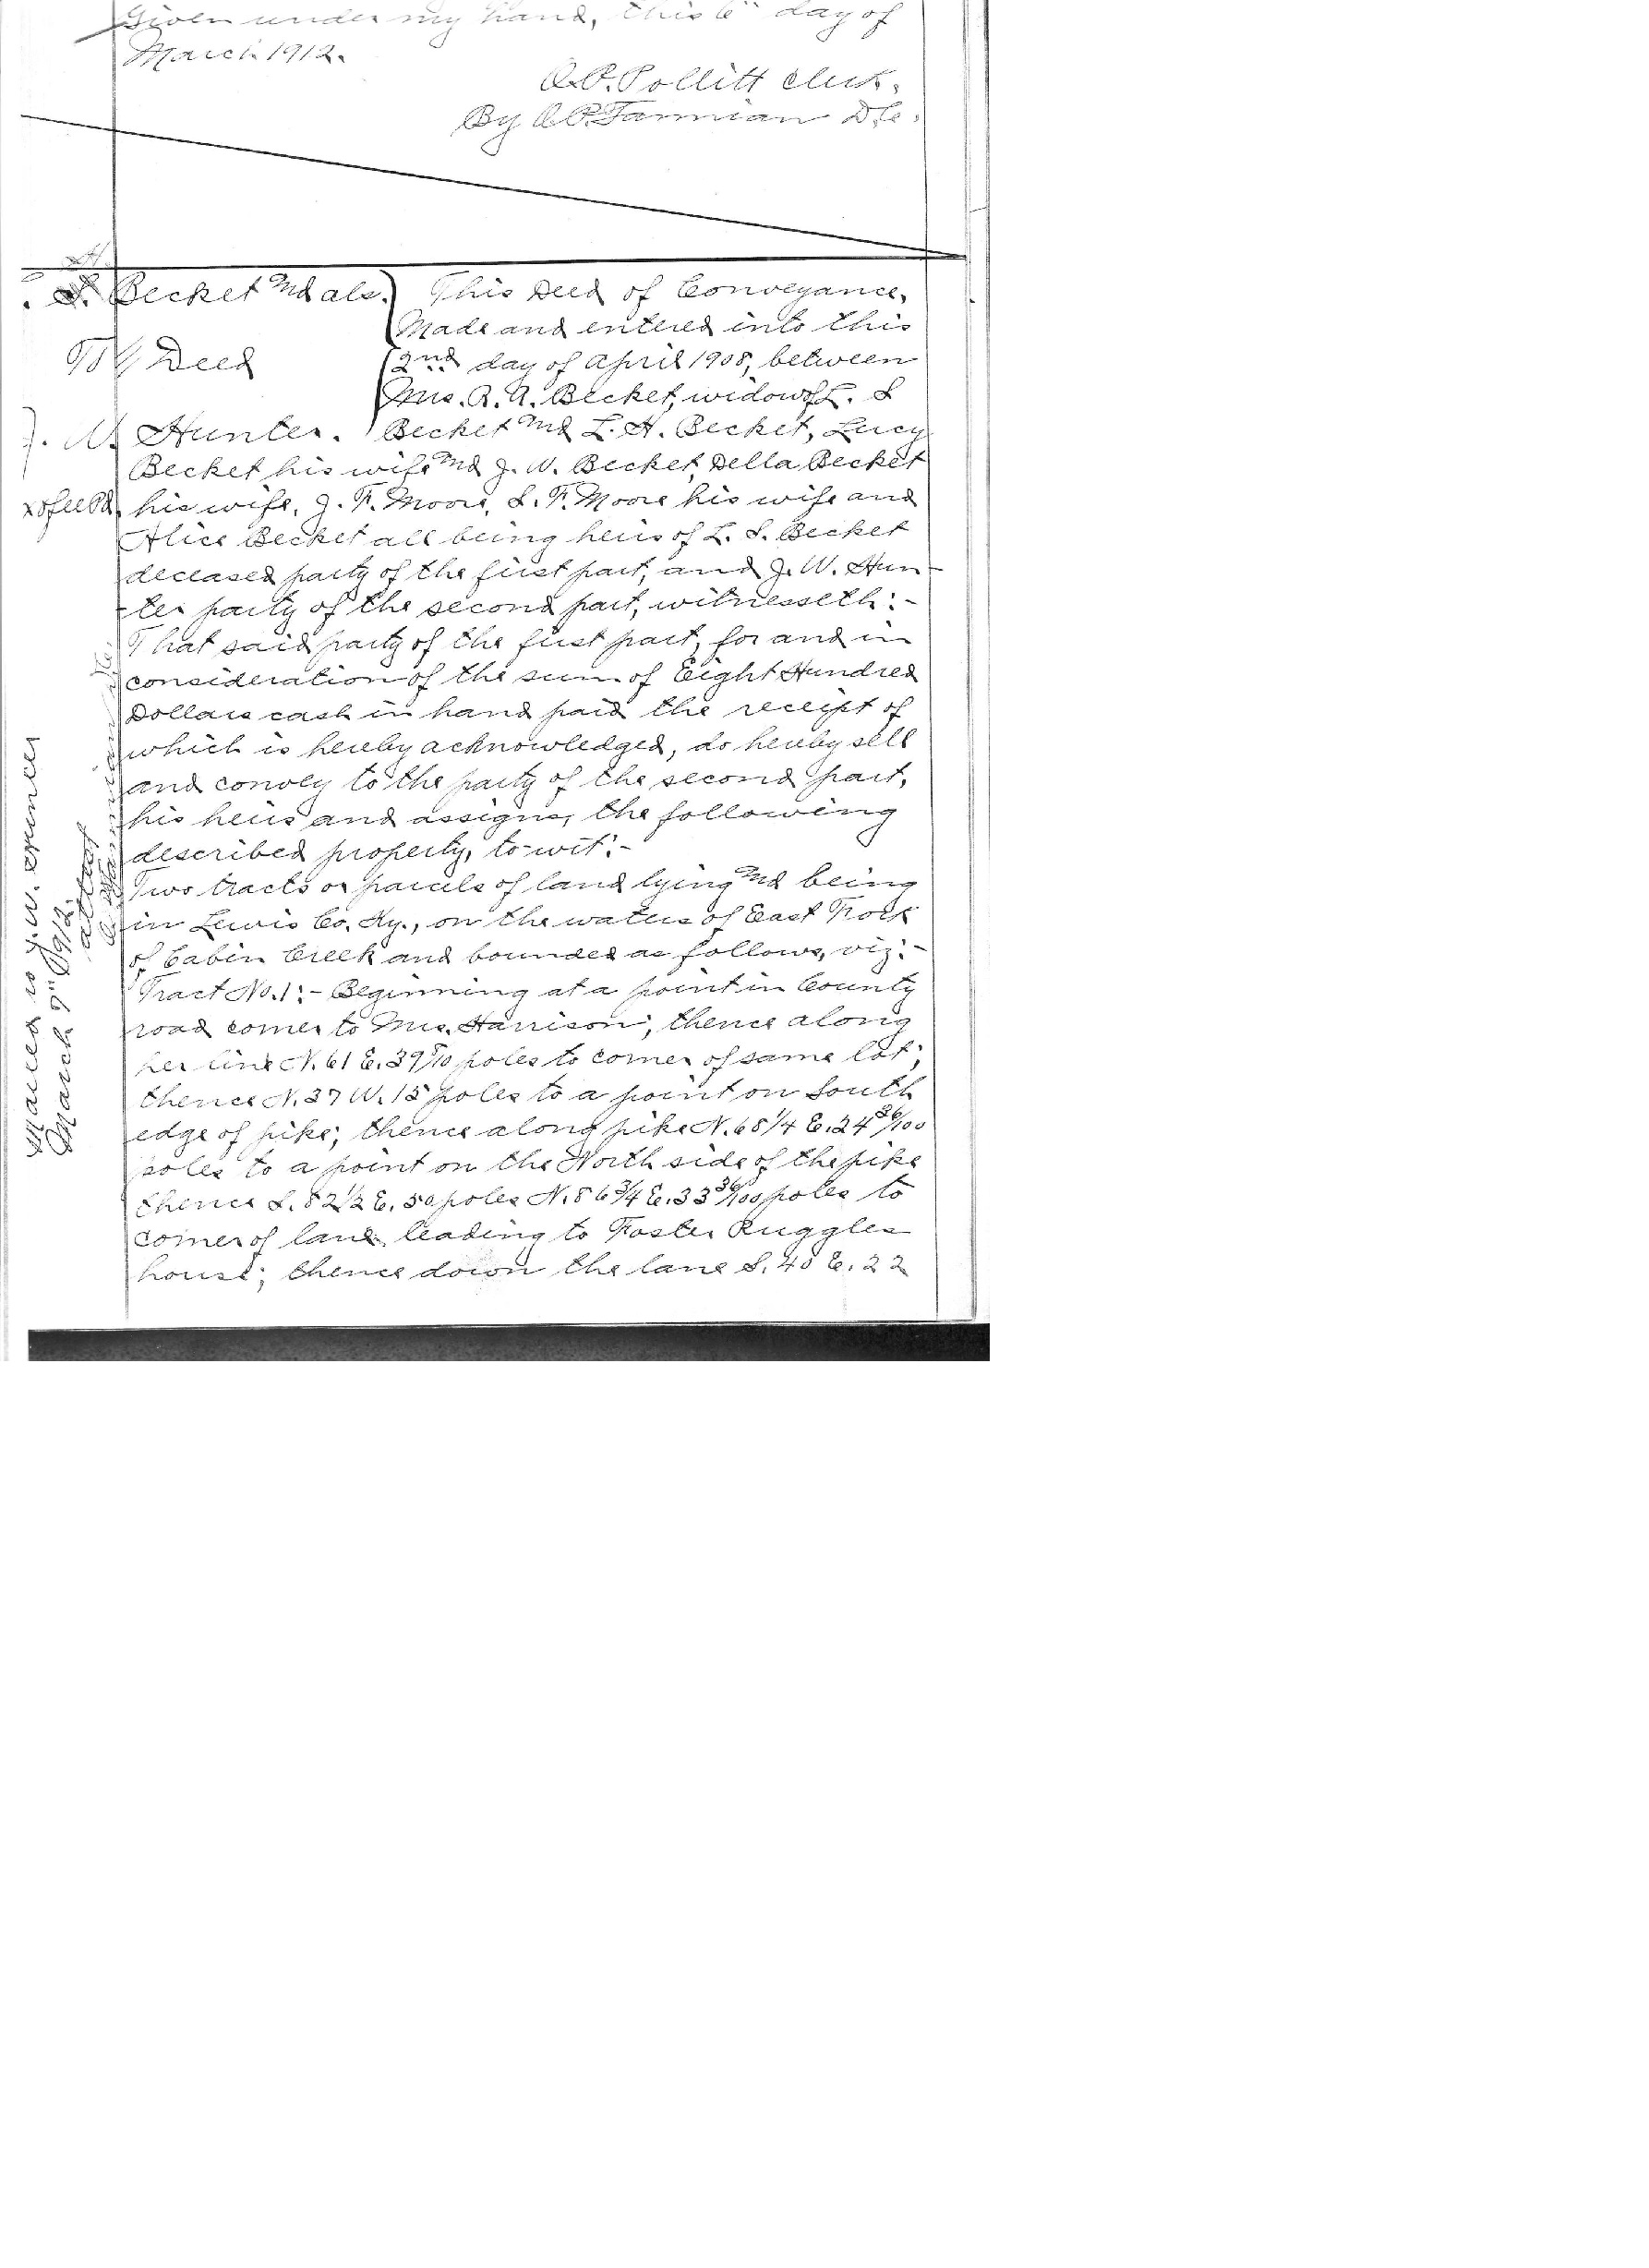 Given under my hand, this 6" day of
March 1912.
O.P. Pollitt Clerk.
By O.P. D.C.
. S. Becket &als.) This Deed of Conveyance,
Made and entered into this
To/ Deed 2nd day of April 1908, between
Mrs. R. A. Becket, widow of L. S
J. W. Hunter. Becket & L. H. Becket, Lucy
Becket his wife & J. W. Becket, Della Becket
his wife, J. F. Moore, L. F. Moore his wife and
Alice Becket all being heirs of L. S. Becket
deceased party of the first part, and J. W. Hun-
ter party of the second part, witnesseth:-
That said party of the first part, for and in
consideration of the sum of Eight Hundred
Dollars cash in hand paid the receipt of
which is hereby acknowledged, do hereby sell
and convey to the party of the second part,
his heirs and assigns, the following
described property, to-wit:-
Two tracts or parcels of land lying & being
in Lewis Co. Ky., on the waters of East Fork
of Cabin Creek and bounded as follows, viz:-
Tract No. 1:- Beginning at a point in County
road corner to Mrs. Harrison; thence along
her line N. 61 E. 39 poles to corner of same lot;
thence N. 37 W. 15 poles to a point on South
edge of pike; thence along pike N. 68 1/4 E. 24 36/100
poles to a point on the North side of the pike
thence S. 82 1/2 E. 50 poles N. 86 3/4 E. 33 36/100 poles to
corner of lane leading to Foster Ruggles
house; thence down the lane S. 40 E. 22
Mailed to J. W.
March 9" 1912.